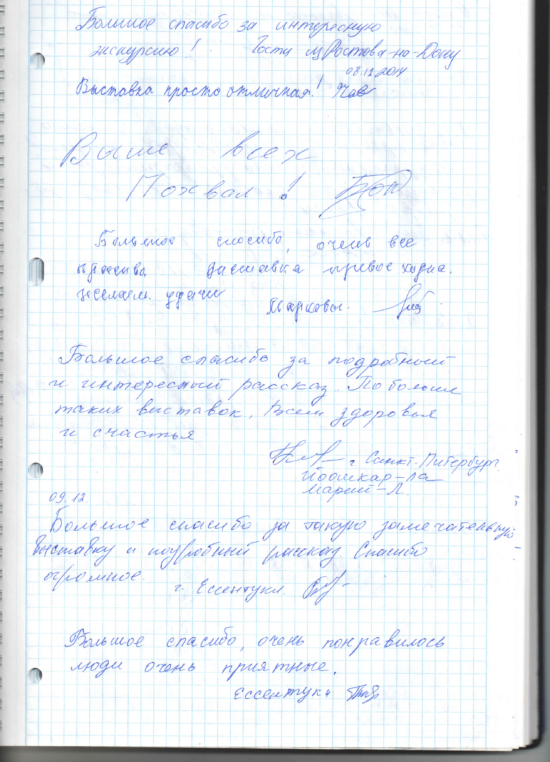 Большое спасибо за интересную
экскурсию! Гости из Ростова-на-Дону
08.12.2014
Выставка просто отличная!
Выше всех
Похвал!
Большое спосибо, очень все
красива Выставка превосходна.
желаем удачи
Марковы.
Большое спасибо за подробный
и интересный рассказ. Побольше
таких выставок. Всем здоровья
и счастья
г. Санкт-Питербург.
Йошкар-Ла
Марий-Л
09.12
Большое спасибо за такую замечательную
выставку и подробный рассказ Спасибо
огромное.
г. Ессентуки
Большое спасибо, очень понравилось
люди очень приятные.
Ессентуки